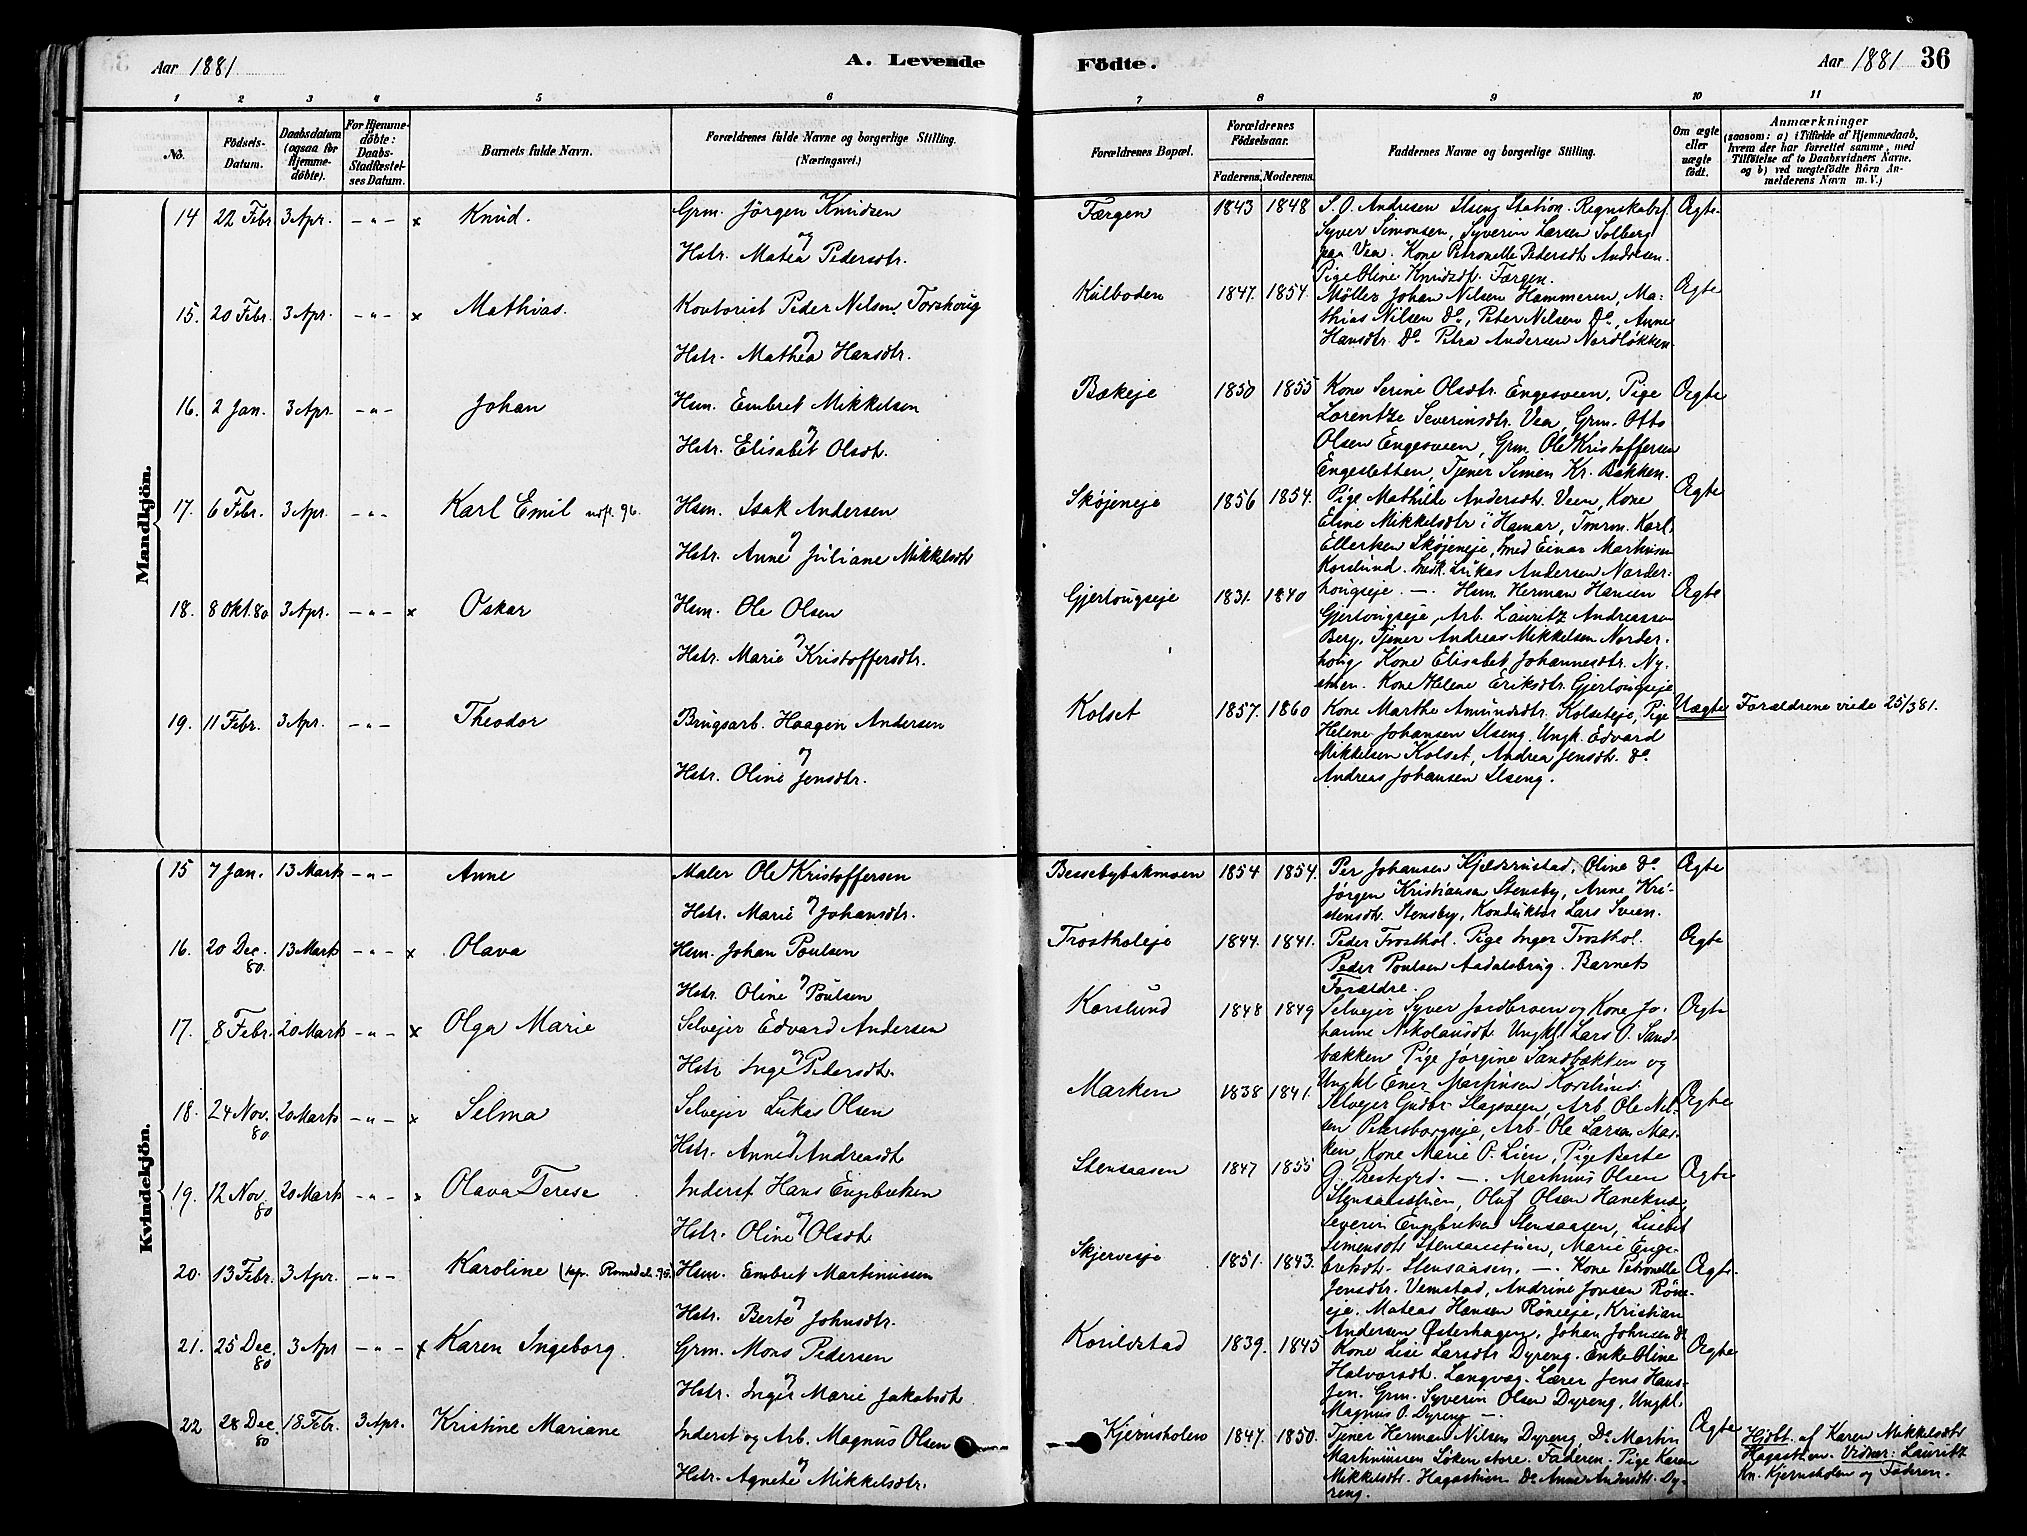 Aar 1881
A. Levende
Födte.
Aar 1881
36
1 2 3 4 5 6 7 8 9 10 11
No.
Födsels-
Datum.
Daabsdatum
(ogsaa for
Hjemme-
döbte).
For Hjemme-
döbte:
Daabs-
Stadfæstel-
ses Datum.
Barnets fulde Navn.
Forældrenes fulde Navne og borgerlige Stilling.
(Næringsvei.)
Forældrenes Bopæl.
Forældrenes
Födselsaar.
Faderens. Moderens.
Faddernes Navne og borgerlige Stilling.
Om ægte
eller
uægte
födt.
Anmærkninger
(saasom: a) i Tilfælde af Hjemmedaab,
hvem der har forrettet samme, med
Tilföielse af to Daabsvidners Navne.
og b) ved uægtefödte Börn An-
melderens Navn m. V.)
Mandkjön.
14 22 Febr 3 Apr. -"- x Knud. Grm. Jörgen Knudsen
og
Hstr. Matea Pedersdtr.
Færgen 1843 1848 S. O. Andresen Ilseng Station. Regnskabsf.
Syver Simonsen, Syverin Larsen Solberg
paa Vea. Kone Petronelle Pedersdt. Andresen.
Pige Oline Knudsdt. Færgen.
Ægte
15. 20 Febr. 3 Apr. -"- x Mathias. Kontorist Peder Nilsen Torshoug
og
Hstr. Mathea Hansdtr.
Kulboden 1847. 1854. Møller Johan Nilsen Hammeren, Ma-
thias Nilsen Do., Peter Nilsen Do., Anne
Hansdtr. Do. Petra Andersen Nordløkken.
Ægte
16. 2 Jan. 3 Apr. -"- Johan Hsm. Embret Mikkelsen
og
Hstr. Elisabet Olsdt.
Bækeje 1850 1855 Kone Serine Olsdtr. Engesveen, Pige
Lorentze Severinsdtr. Vea, Grm. Otto
Olsen Engesveen, Grm. Ole Kristoffersen
Engesletten, Tjener Simen Kr. Bakken.
Ægte
17. 6 Febr. 3 Apr. -"- Karl Emil udfl. 96. Hsm. Isak Andersen
og
Hstr. Anne Juliane Mikkelsdt
Skøjeneje 1856 1854. Pige Mathilde Andersdt. Veen, Kone
Eline Mikkelsdtr i Hamar, Tmrm. Karl
Ellerken Skøjeneje, Smed Einar Martinsen
Korslund. Smedk. Lukas Andersen Norder-
hougseje. —.
Ægte
18. 8 Okt. 80 3 Apr. -"- x Oskar Hsm. Ole Olsen
og
Hstr. Marie Kristoffersdtr.
Gjerlougseje 1831. 1840 Hsm. Herman Hansen
Gjerlougseje, Arb. Lauritz Andreassen
Berg, Tjener Andreas Mikkelsen Norder-
houg Kone Elisabet Johannesdtr. Ny-
stuen. Kone Helene Eriksdtr. Gjerlougseje
Ægte
19. 11 Febr. 3 Apr. -"- Theodor Brugsarb. Haagen Andersen
og
Hstr. Oline Jensdtr.
Kolset 1857. 1860 Kone Marthe Amundsdtr. Kolseteje, Pige
Helene Johansen Ilseng. Ungk. Edvard
Mikkelsen Kolset, Andrea Jensdt. Do.
Andreas Johansen Ilseng.
Uægte Forældrene viede 25/3 81.
Kvindekjön.
15 7 Jan. 13 Marts -"- Anne Maler Ole Kristoffersen
og
Hstr. Marie Johansdtr.
Bessebybakmoen 1854 1854. Per Johansen Kjeldsrustad, Oline Do.
Jørgen Kristiansen Stensby, Anne Kri-
stensdt. Stensby, Konduktör Lars Sveen.
Ægte
16. 20 Dec. 80. 13 Marts -"- x Olava Hsm. Johan Poulsen
og
Hstr. Oline Poulsen
Trostholeje 1844. 1841. Peder Trosthol. Pige Inger Trosthol.
Peder Poulsen Aadalsbrug. Barnets
Forældre.
Ægte
17. 8 Febr. 20 Marts -"- x Olga Marie Selvejer Edvard Andersen
og
Hstr Inge Pedersdt.
Korslund 1848 1849 Selvejer Syver Jordbroen og Kone Jo-
hanne Nikolausdt. Ungkl. Lars O. Sand-
bækken Pige Jørgine Sandbækken og
Ungkl Ener Martinsen Korslund.
Ægte
18. 24 Nov. 80 20 Marts -"- x Selma Selvejer Lukas Olsen
og
Hstr. Anne Andreasdt
Marken 1838 1841. Selvejer Gudbr. Slagsveen, Arb. Ole Nil-
sen Petersborgseje, Arb. Ole Larsen Mar-
ken, Kone Marie P. Lien, Pige Berte
G. Prestgrd. —.
Ægte
19. 12 Nov. 80 20 Marts -"- x Olava Terese Inderst Hans Engbreken
og
Hstr. Oline Olsdt
Stensaasen 1847 1855 Martinus Olsen
Stensaasstuen, Oluf Olsen Haneknæ,
Severin Engbreken Stensaasen, Lisebet
Simensdt Stensaasstuen, Marie Enge-
brekdt. Stensaasen. —.
Ægte
20. 13 Febr. 3 Apr. -"- Karoline Hsm. Embret Martinussen
og
Hstr. Berte Johnsdtr.
Skjerveje 1851. 1843. Kone Petronelle
Jensdtr. Vemstad, Andrine Jonsen Røne-
eje. Mateas Hansen Røneeje, Kristian
Andersen Østerhagen, Johan Johnsen Do
Ægte
21. 25 Dec. 80 3 Apr -"- x Karen Ingeborg. Grm. Mons Pedersen
og
Hstr. Inger Marie Jakobsdt
Korildstad 1839. 1845 Kone Lise Larsdtr Dyreng. Enke Oline
Halvorsdt. Langvag. Lærer Jens Hans-
sen. Grm. Syverin Olsen Dyreng, Ungkl.
Magnus O. Dyreng —.
Ægte
22 28 Dec. 80 18 Febr. 3 Apr. Kristine Mariane Inderst og Arb. Magnus Olsen
og
Hstr. Agnete Mikkelsdtr.
Kjernsholen 1847. 1850. Tjener Herman Nilsen Dyreng Do. Martin
Martiniussen Løken store. Faderen. Pige Karen
Mikkelsdt. Hagestuen Do. Anne Andersdt. Dy-
reng.
Ægte Hjdbt. af Karen Mikkelsdt
Hagestuen. Vidner: Lauritz
Kn. Kjernsholen og Faderen.